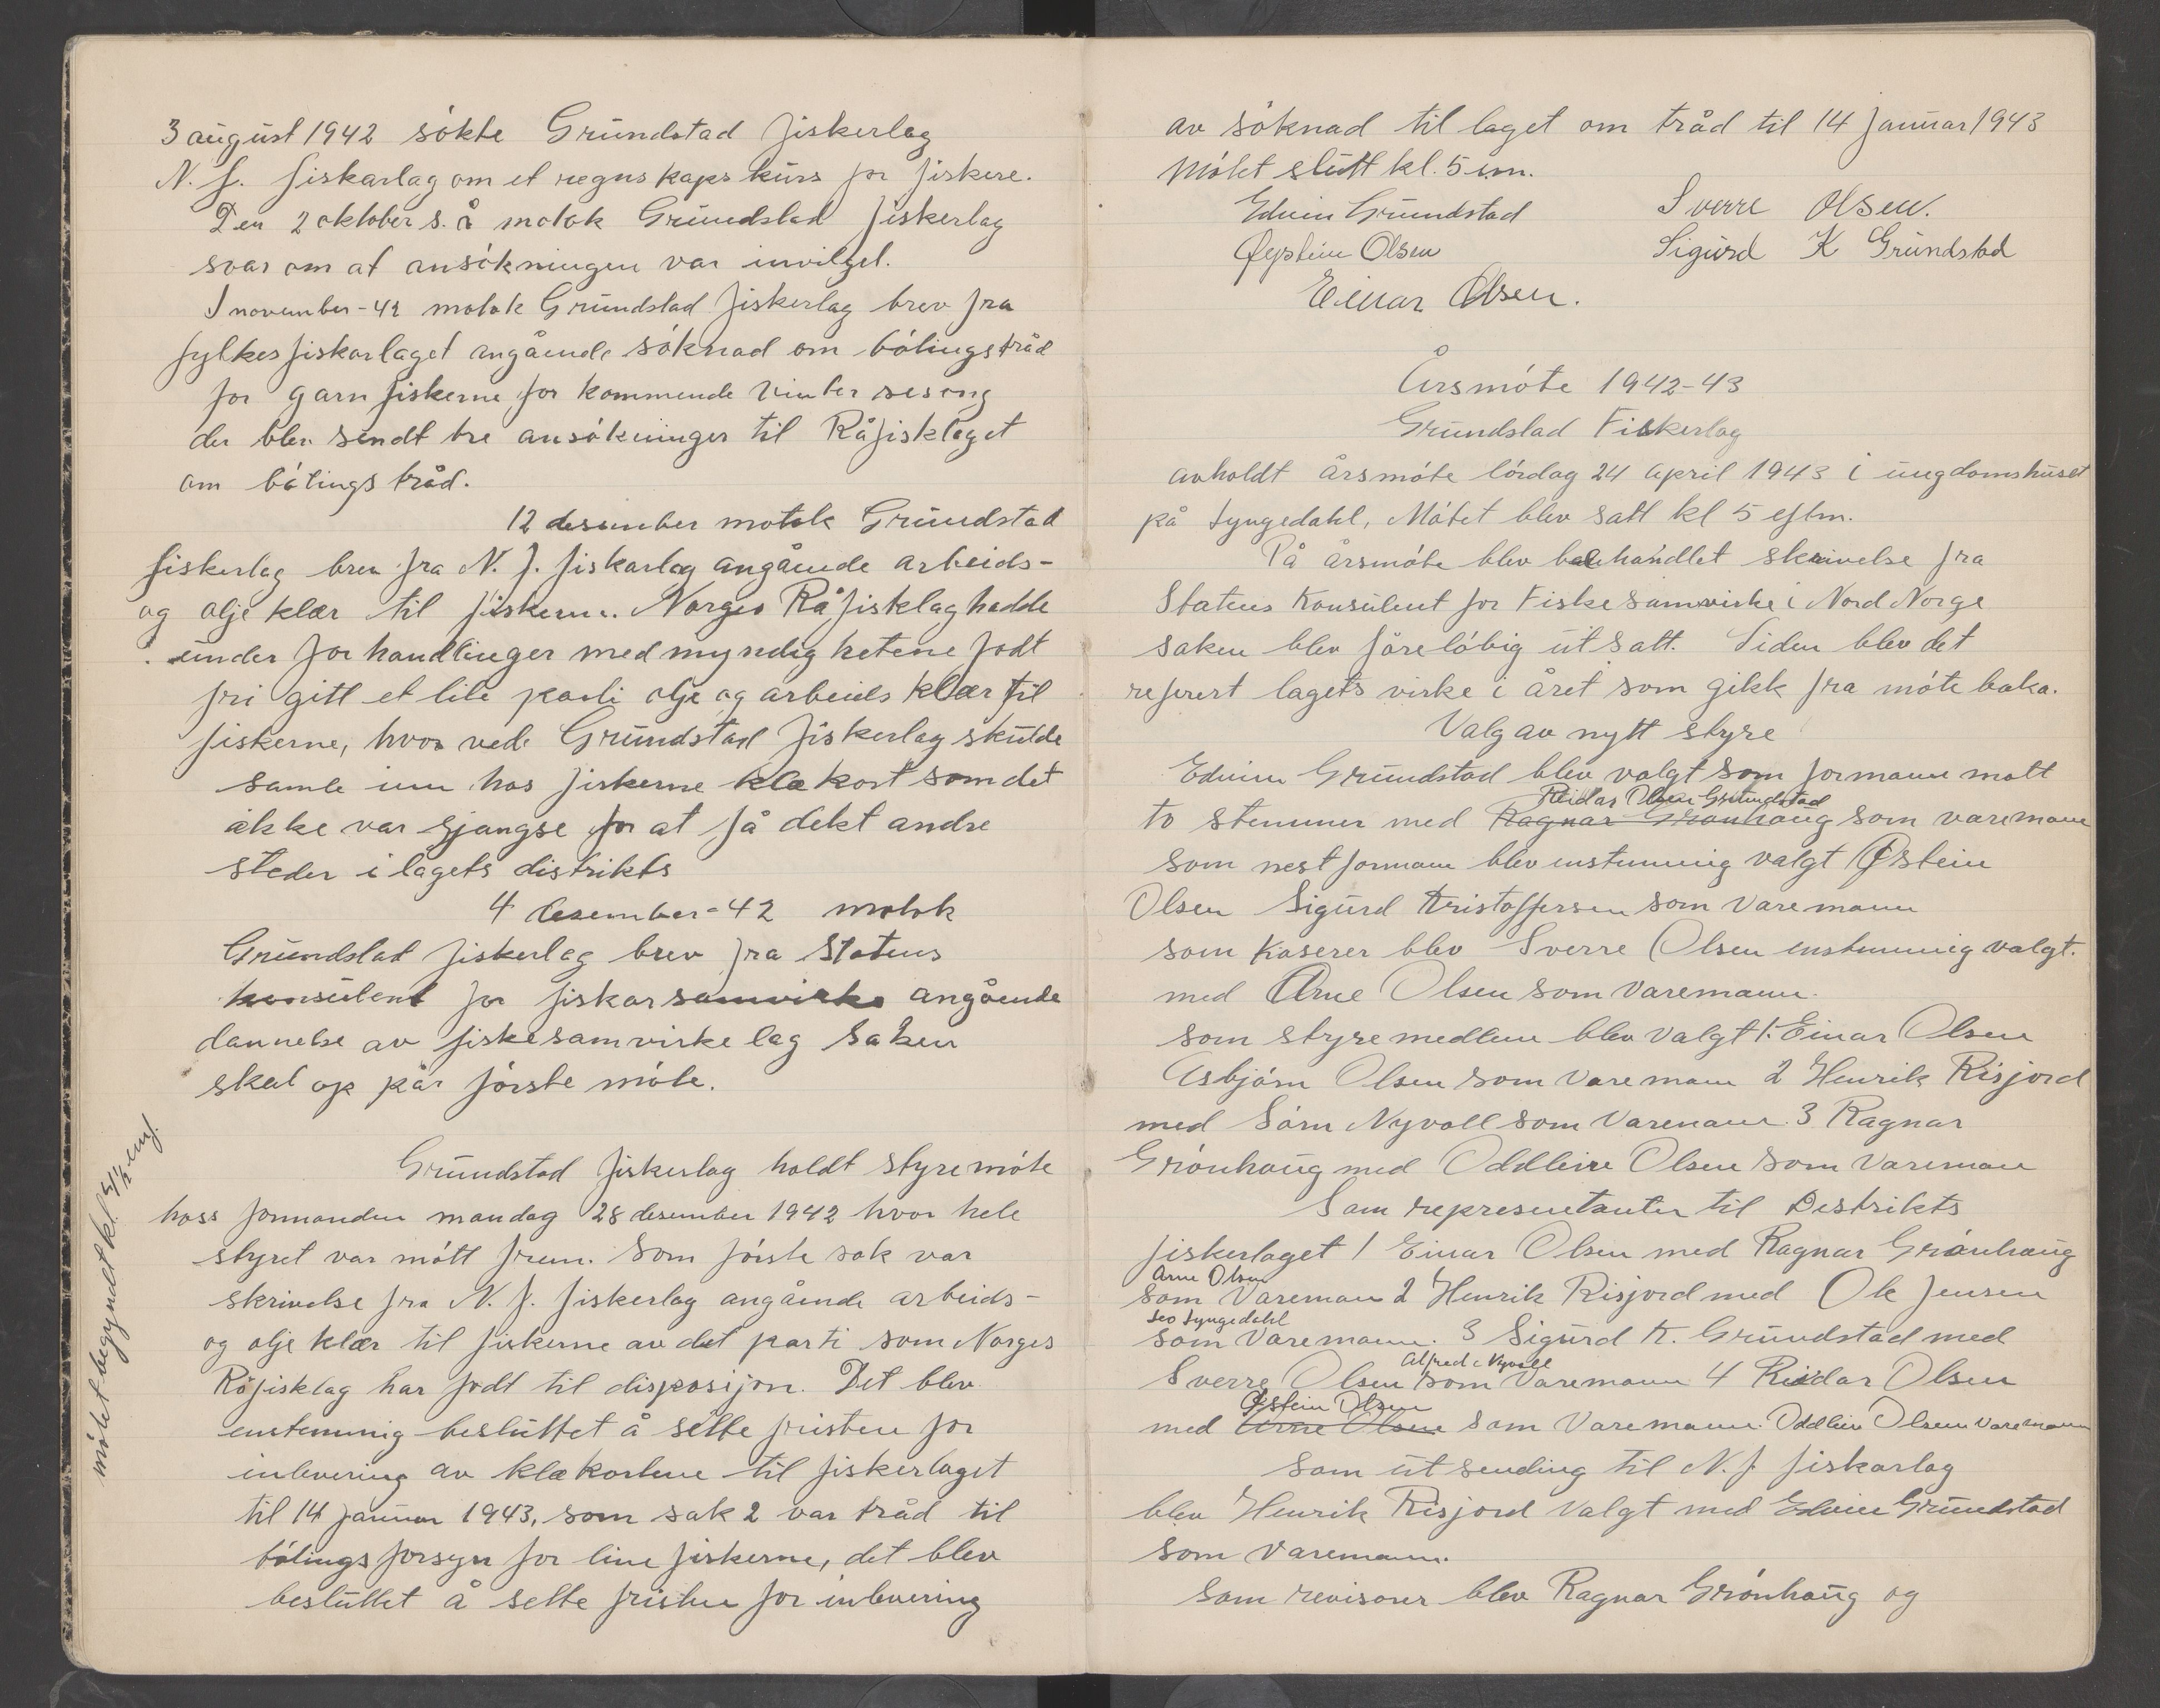 3 august 1942 søkte Grundstad fiskerlag
N. f. fiskarlag om et regnskaps kurs for fiskere.
Den 2 oktober s. å motok Grundstad fiskerlag
svar om at ansøkningen var invilget.
I november - 42 motok Grundstad fiskerlag brev fra
fylkesfiskarlaget angående søknad om bøtingstråd
for garn fiskerne for kommende vinter sesong
der blev sendt tre ansøkninger til Råfisklaget
om bøtings tråd.
12 desember motok Grundstad
fiskerlag brev fra N. f. fiskarlag angående arbeids-
og olje klær til fiskerne. Norges Råfisklag hadde
under forhandlinger med myndighetene fådt
fri gitt et lite parti olje og arbeids klær til
fiskerne, hvor vede Grundstad fiskerlag skulde
samle inn hos fiskerne klækort som det
ikke var gjangse for at få dekt andre
steder i lagets distrikts
4 desember - 42 motok
Grundstad fiskerlag brev fra Statens
konsulent for fiskarsamvirke angående
dannelse av fiskesamvirkelag saken
skal op på første møte.
Grundstad fiskerlag holdt styremøte
hoss formanden mandag 28 desember 1942 hvor hele
styret var møtt frem. Som første sak var
skrivelse fra N. f. fiskerlag angående arbeids-
og olje klær til fiskerne av det parti som Norges
Råfisklag har fådt til disposijon. Det blev
enstemmig besluttet å sette fristen for
inlevering av klækortene til fiskerlaget
til 14 januar 1943, som sak 2 var tråd til
bøtings forsyn for line fiskerne, det blev
besluttet å sette fristen for inlevering
møtet begyndt kl. 4½ em.
av søknad til laget om tråd til 14 januar 1943
Møtet slutt kl. 5 em.
Edvin Grundstad Sverre Olsen.
Øystein Olsen Sigurd K Grundstad
Einar Olsen.
Årsmøte 1942-43
Grundstad Fiskerlag
avholdt årsmøte lørdag 24 april 1943 i ungdomshuset
på Lyngedahl, Møtet blev satt kl 5 eftm.
På årsmøte blev behandlet skrivelse fra
Statens Konsulent for Fiskesamvirke i Nord Norge
saken blev føreløbig utsatt. Siden blev det
referert lagets virke i året som gikk fra møte baka.
Valg av nytt styre
Edvin Grundstad blev valgt som formann mott
Reidar Olsen Grundstad
to stemmer med Ragnar Grønhaug som varemann
som nestformann blev enstemmig valgt Østein
Olsen Sigurd Kristoffersen som varemann
som Kaserer blev Sverre Olsen enstemmig valgt.
med Arne Olsen som varemann.
som styremedlem blev valgt 1. Einar Olsen
Asbjørn Olsen som varemann 2 Henrik Risjord
med Sørn Nyvoll som varemann 3 Ragnar
Grønhaug med Oddleiv Olsen som varemann
Som representanter til Destrikts
fiskerlaget 1 Einar Olsen med Ragnar Grønhaug
Arne Olsen
som Varemann 2 Henrik Risjord med Ole Jensen
Leo Lyngedahl
som varemann. 3 Sigurd K. Grundstad med
Alfred Nyvoll
Sverre Olsen som varemann 4 Reidar Olsen
Østein Olsen
med Arne Olsen som Varemann. Oddleiv Olsen varemann
som utsending til N. f. fiskarlag
blev Henrik Risjord valgt med Edvin Grundstad
som varemann.
som revisorer blev Ragnar Grønhaug og